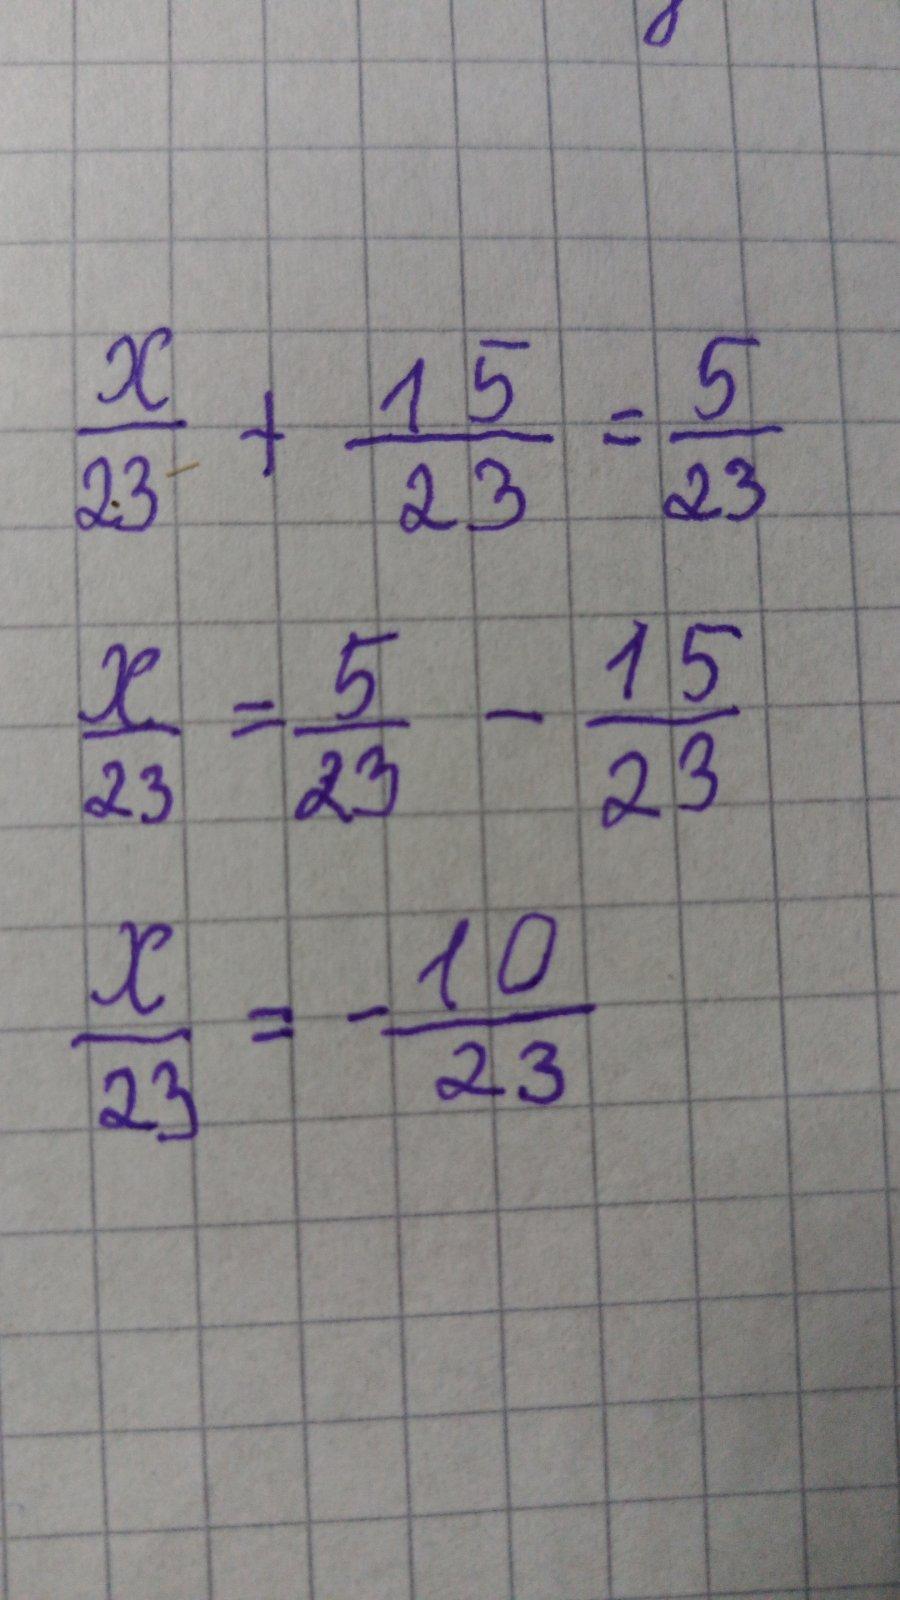 x/23 + 15/23 = 5/23
x/23 = 5/23 - 15/23
x/23 = -10/23